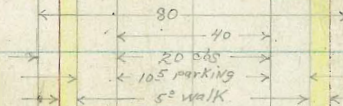 80
40
20 obs
10⁵ parking
5⁰ walk